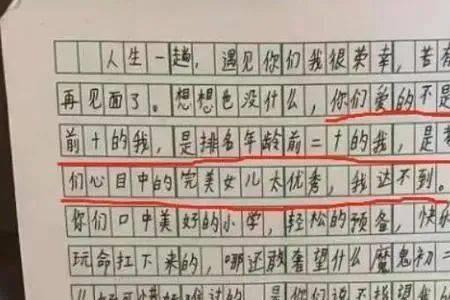 人生一趟，遇见你们我很荣幸，若有
再见面了。想想也没什么，你们爱的不是
前十的我，是排名年龄前二十的我，是
们心目中的完美女儿太优秀，我达不到。
你们口中美好的小学，轻松的预备，快
玩命扛下来的，哪还敢奢望什么魔鬼初二
的是